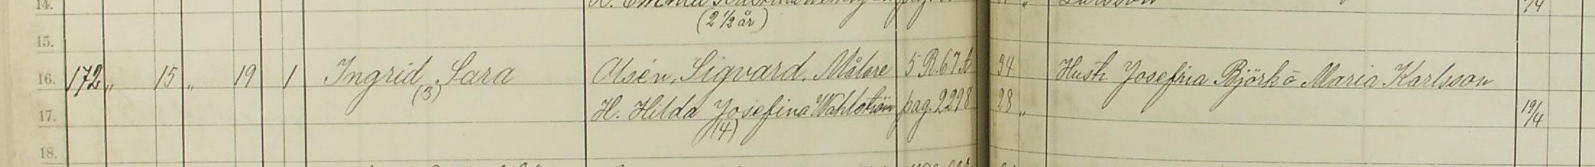 14.
(2 ½ år)
15.
16. 172 „ 15 „ 19 1 Ingrid, Sara Olsén, Sigvard, Målare 5 R. 67. 34 Hustr Josefina Björkö Maria Karlsson
(3)
17. H. Hilda Josefina Wahlström pag. 2298 28 „ 19/4
(4)
18.